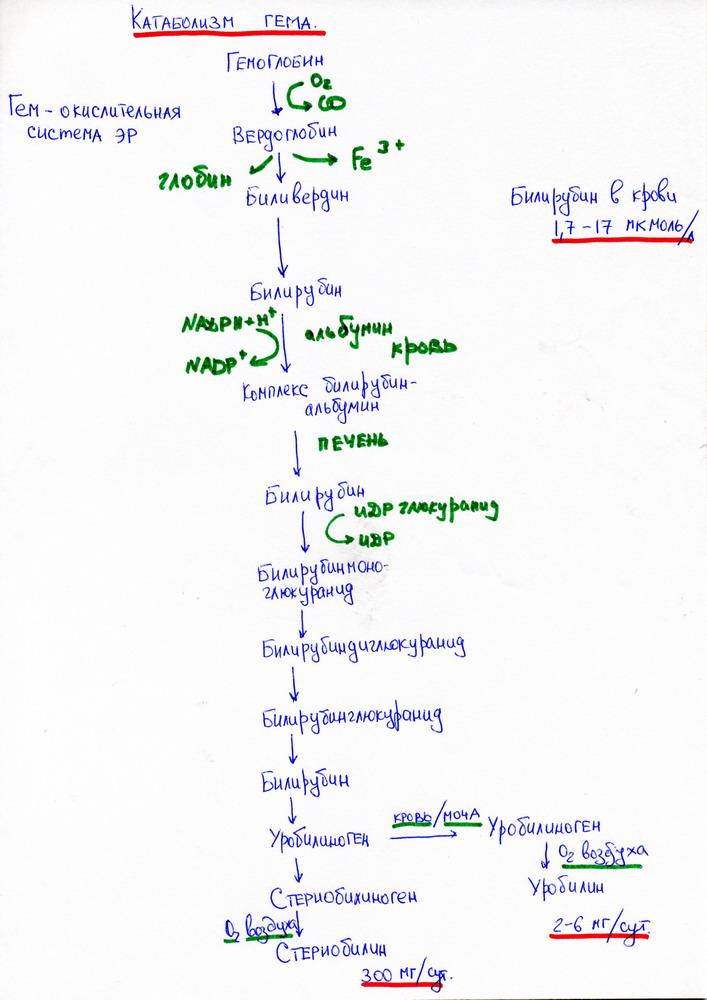 КАТАБОЛИЗМ ГЕМА.
ГЕМОГЛОБИН
O₂
CO
Гем - окислительная
система ЭР
ВЕРДОГЛОБИН
глобин
Fe³⁺
Биливердин
Билирубин в крови
1,7-17 мкмоль/л
Билирубин
NADPH+H⁺
альбумин
кровь
NADP⁺
Комплекс билирубин-
альбумин
ПЕЧЕНЬ
Билирубин
UDP глюкуранид
UDP
Билирубинмоно-
глюкуранид
Билирубиндиглюкуранид
Билирубинглюкуранид
Билирубин
КРОВЬ/МОЧА
Уробилиноген
Уробилиноген
O₂ воздуха
Уробилин
Стериобилиноген
O₂ воздуха
2-6 мг/сут.
Стериобилин
300 мг/сут.